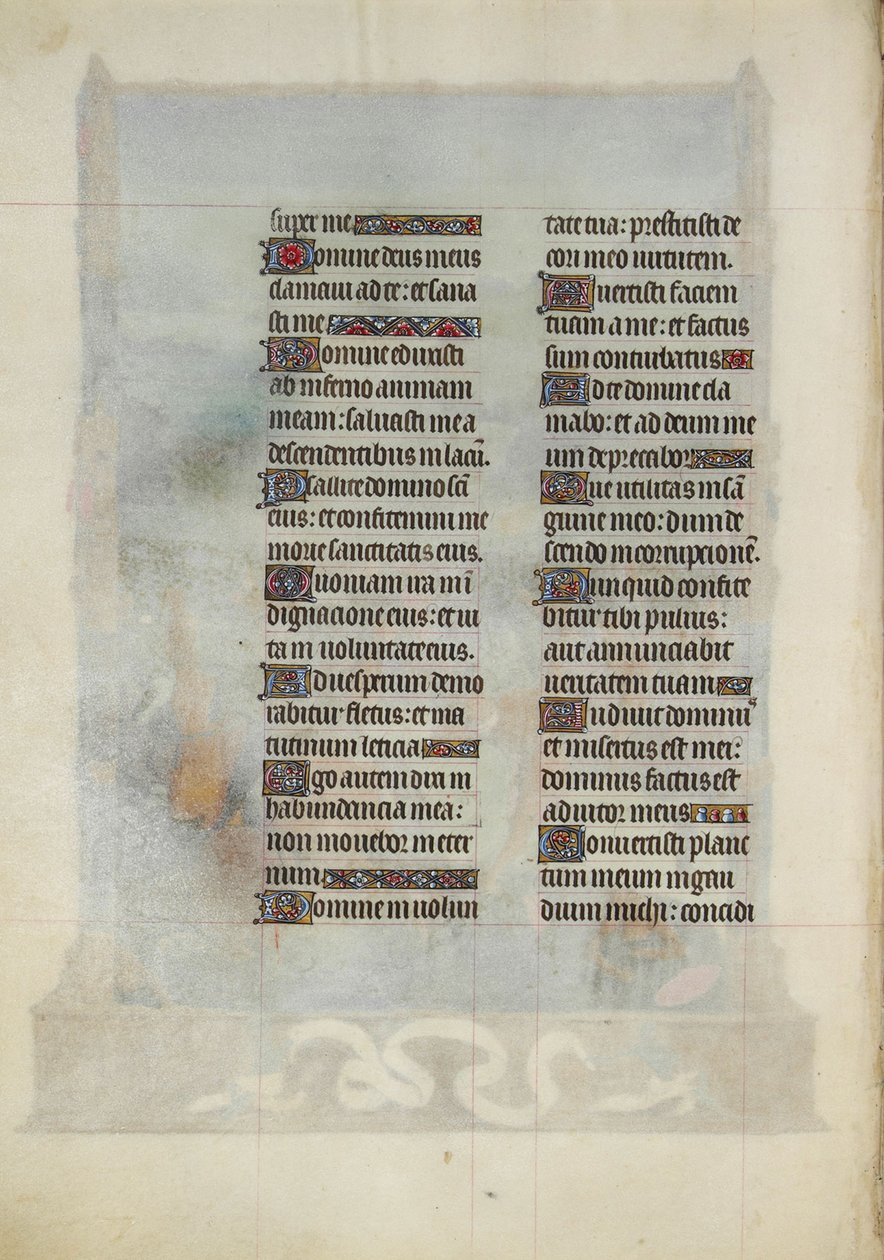 super me
Domine deus meus
clamaui ad te: et sana
sti me
Domine eduxisti
ab inferno animam
meam: saluasti me a
descendentibus in lacū.
Psallite domino scī
eius: et confitemini me
morie sanctitatis eius.
Quoniam ira in ī
dignacione eius: et ui
ta in uoluntate eius.
Ad uesperum demo
rabitur fletus: et ma
tutinum leticia
Ego autem dixi in
habundancia mea:
non mouebor in eter
num
Domine in uolun
tate tua: prestitisti de
cori meo uirtutem.
Auertisti faciem
tuam a me: et factus
sum conturbatus
Ad te domine cla
mabo: et ad deum me
um deprecabor
Que utilitas in sā
guine meo: dum de
scendo in corrupcionē.
Nunquid confite
bitur tibi puluis:
aut annunciabit
ueritatem tuam
Audiuit dominus
et misertus est mei:
dominus factus est
adiutor meus
Conuertisti planc
tum meum in gau
dium michi: concidi